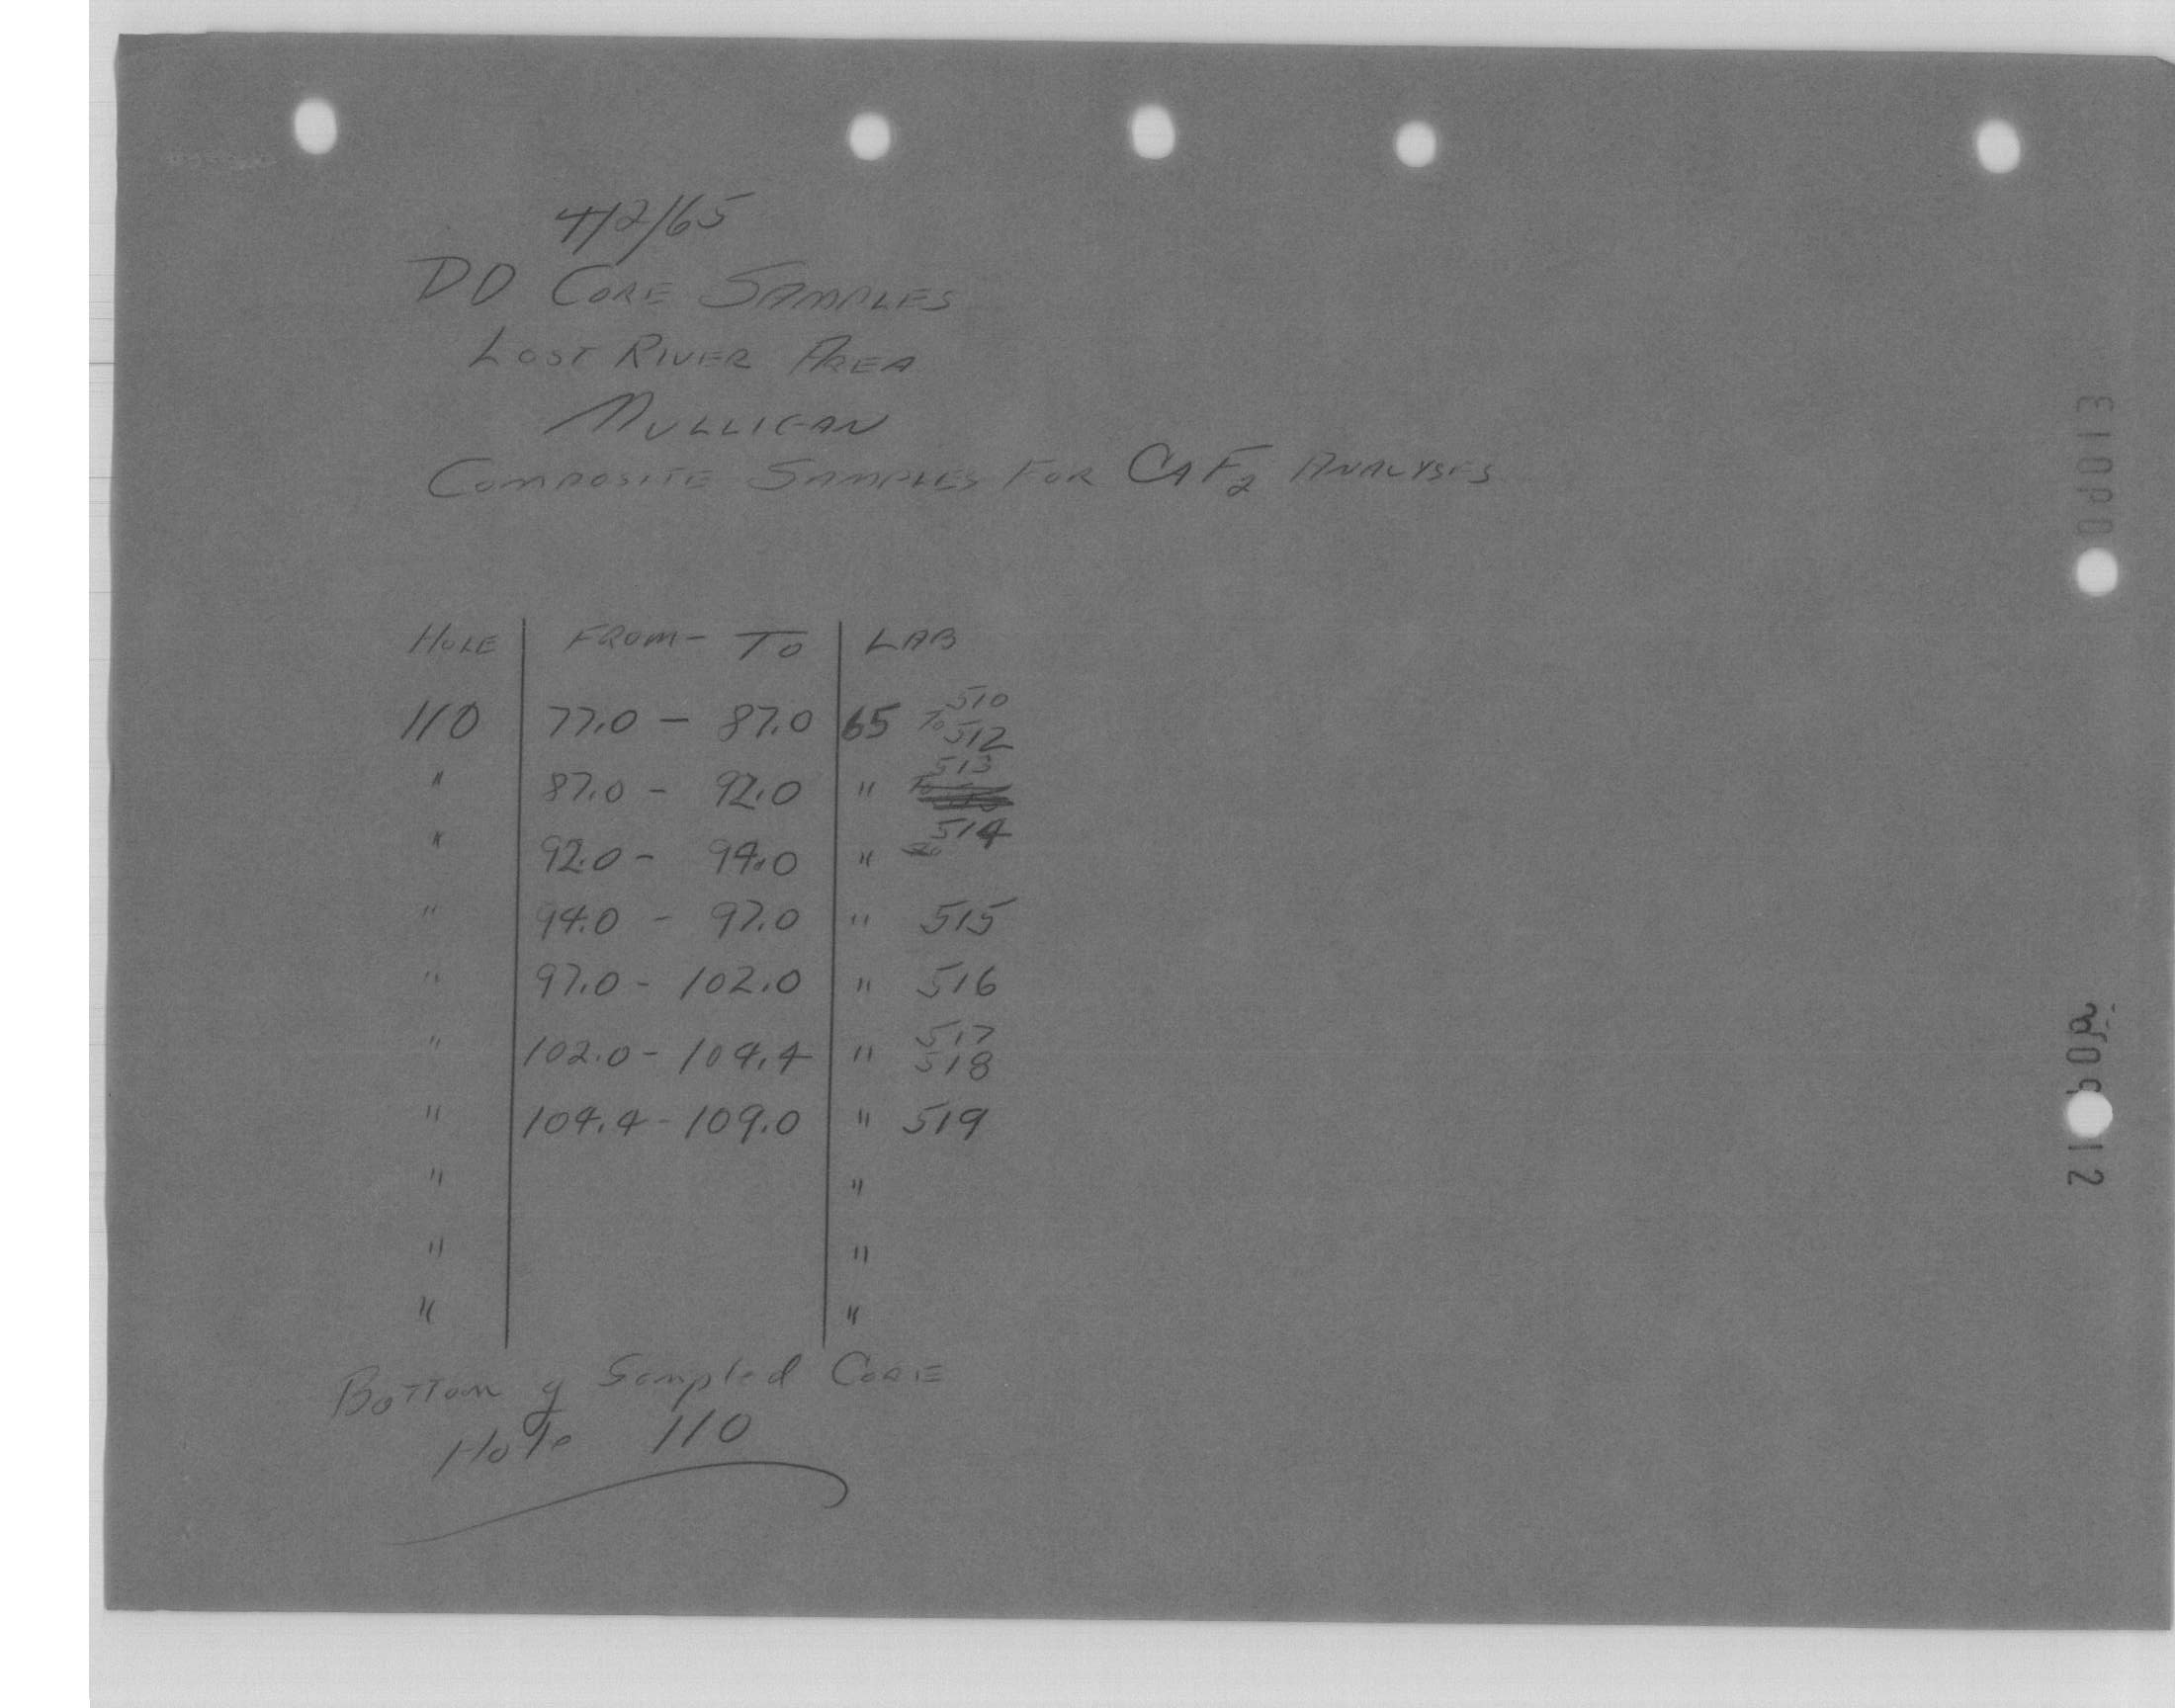 4/2/65
DD CORE SAMPLES
LOST RIVER AREA
MULLIGAN
COMPOSITE SAMPLES FOR CAF2 ANALYSES
HOLE FROM - TO LAB
110 77.0 - 87.0 65 510 To 512
" 87.0 - 92.0 " 513 To
" 92.0 - 94.0 " 514
" 94.0 - 97.0 " 515
" 97.0 - 102.0 " 516
" 102.0 - 104.4 " 517 518
" 104.4 - 109.0 " 519
" "
" "
" "
BOTTOM of Sampled CORE
Hole 110